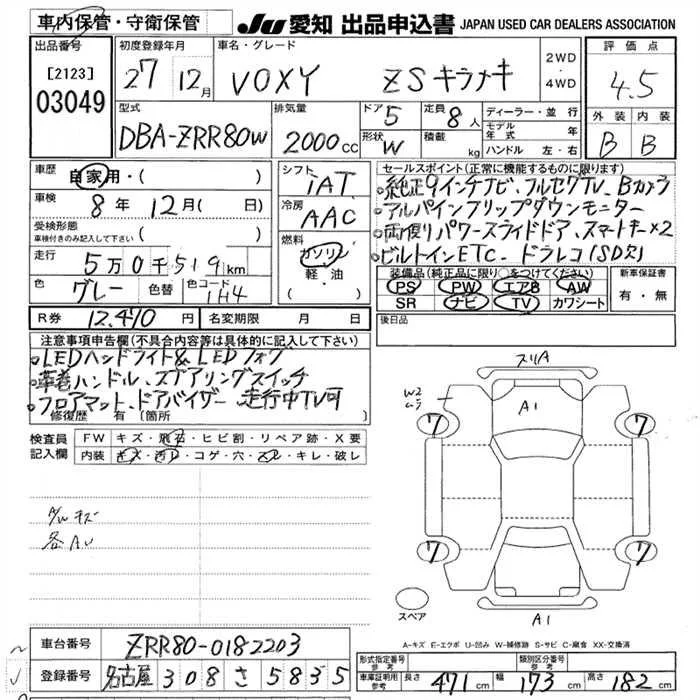 車内保管・守衛保管
JU 愛知 出品申込書 JAPAN USED CAR DEALERS ASSOCIATION
出品番号 [2123] 03049
初度登録年月 27 12月
車名・グレード VOXY ZSキラメキ 2WD 4WD
評価点 4.5
型式 DBA-ZRR80W
排気量 2000cc
ドア 5
形状 W
定員 8人
積載 kg
ディーラー・並行
モデル年式 年
ハンドル 左・右
外装 内装
B B
車歴 自家用・( )
車検 8年 12月( 日)
受検形態
車検付きのみ記入して下さい ( )
走行 5万0千519km
色 グレー 色替 色コード 1H4
シフト IAT
冷房 AAC
燃料 ガソリン 軽・油
セールスポイント(正常に機能するものに限ります)
・純正9インチナビ、フルセグTV、Bカメラ
・アルパインフリップダウンモニター
・両側パワースライドドア、スマートキー×2
・ビルトインETC、ドラレコ(SD欠)
装備品(純正品に限り○をつけてください)
PS PW エアB AW
SR ナビ TV カワシート
新車保証書 有・無
R券 12,410円 名変期限 月 日
後日品
注意事項申告欄(不具合内容等は具体的に記入して下さい)
・LEDヘッドライト&LEDフォグ
・革巻ハンドル、ステアリングスイッチ
・フロアマット、ドアバイザー 走行中TV可
修復歴 有[箇所 ]
検査員記入欄
FW キズ・飛石・ヒビ割・リペア跡・X要
内装 キズ・汚レ・コゲ・穴・スレ・キレ・破レ
A/Wキズ
各A.U
スリA
W2
A1
7 7
7 7
スペア
A1
A-キズ E-エクボ U-凹み W-補修跡 S-サビ C-腐食 XX-交換済
車台番号 ZRR80-0182203
登録番号 名古屋 308 さ 5835
形式指定番号 類別区分番号
車庫証明用参考 長さ 471cm 幅 173cm 高さ 182cm